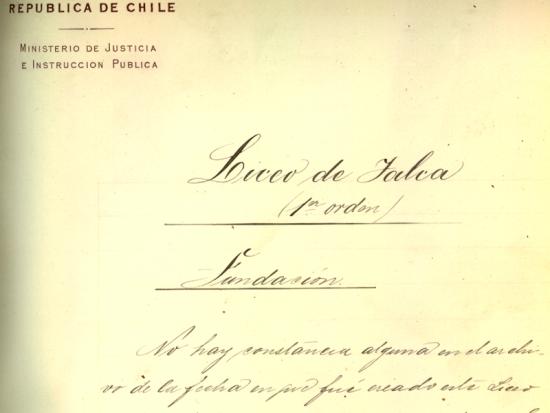 REPUBLICA DE CHILE
MINISTERIO DE JUSTICIA
E INSTRUCCION PUBLICA
Liceo de Talca
(1er orden)
Fundación.
No hay constancia alguna en el archi-
vo de la fecha en que fué creado este Liceo